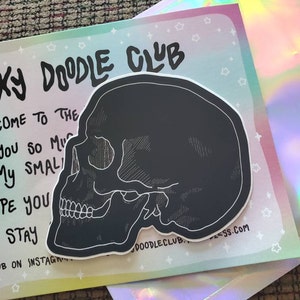 KY DOODLE CLUB
COME TO THE
YOU SO MUC
MY SMALL
PE YOU
STAY
UB ON INSTAGRAM
DOODLECLUB.
ESS.COM